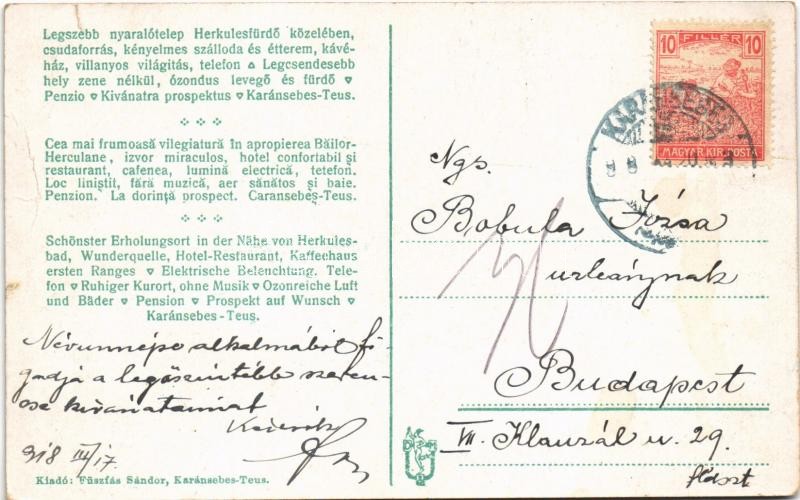 Legszebb nyaralótelep Herkulesfürdő közelében,
csudaforrás, kényelmes szálloda és étterem, kávé-
ház, villanyos világitás, telefon ▵ Legcsendesebb
hely zene nélkül, ózondus levegő és fürdő ▿
Penzio ▿ Kivánatra prospektus ▿ Karánsebes-Teus.
Cea mai frumoasă vilegiatură în apropierea Băilor-
Herculane, izvor miraculos, hotel confortabil și
restaurant, cafenea, lumină electrică, tetefon.
Loc liniștit, fără muzică, aer sănătos și baie.
Penzion. La dorință prospect. Caransebeș-Teus.
Schönster Erholungsort in der Nähe von Herkules-
bad, Wunderquelle, Hotel-Restaurant, Kaffeehaus
ersten Ranges ▿ Elektrische Beleuchtung. Tele-
fon ▿ Ruhiger Kurort, ohne Musik ▿ Ozonreiche Luft
und Bäder ▿ Pension ▿ Prospekt auf Wunsch ▿
Karánsebes-Teus.
Névünnepe alkalmából fo
gadja a legőszintébb szeren-
cse kivánataimat
918 III/17.
Kiadó: Füszfás Sándor, Karánsebes-Teus.
10 FILLÉR 10
MAGYAR KIR. POSTA
KARÁNSEBES
Ngs.
Bobula Józsa
urleánynak
Budapest
VII. Klauzál u. 29.
fldszt